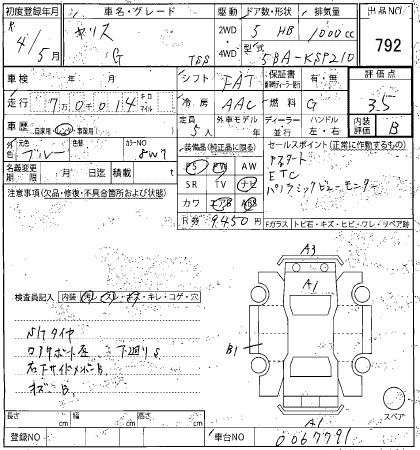 初度登録年月 車名・グレード 駆動 ドア数・形状 排気量 出品NO
R 4/5月 ヤリス G TSS 2WD 4WD 5 HB 1000cc 792
型式 5BA-KSP210
車検 年 月 シフト FAT 保証書 有・無 評価点
走行 7万0千014 キロ マイル 冷房 AAC 燃料 G 3.5
車歴 自家用 レンタ 事業用 定員 5人 外車モデル 年 ディーラー 並行 ハンドル 左・右 内装評価 B
外色 元色 ブルー 色替 カラーNO 8W7
装備品(純正品に限る) セールスポイント (正常に作動するもの)
PS PW AW
SR TV ナビ
カワ エアB ABS
R券 9450円
アスタート
ETC
パノラミックビューモニター
名義変更期限 月 日迄 積載 t
注意事項(欠品・修復・不具合箇所および状態)
Fガラス トビ石・キズ・ヒビ・ワレ・リペア跡
検査員記入 内装 汚レ・スレ・キズ・キレ・コゲ・穴
S/Tタイヤ
コアサポート座 下廻りS
右下サイドメンバーB
A3
A1
B1
A1
スペア
長さ cm 幅 cm 高さ cm
登録NO 車台NO 0067791